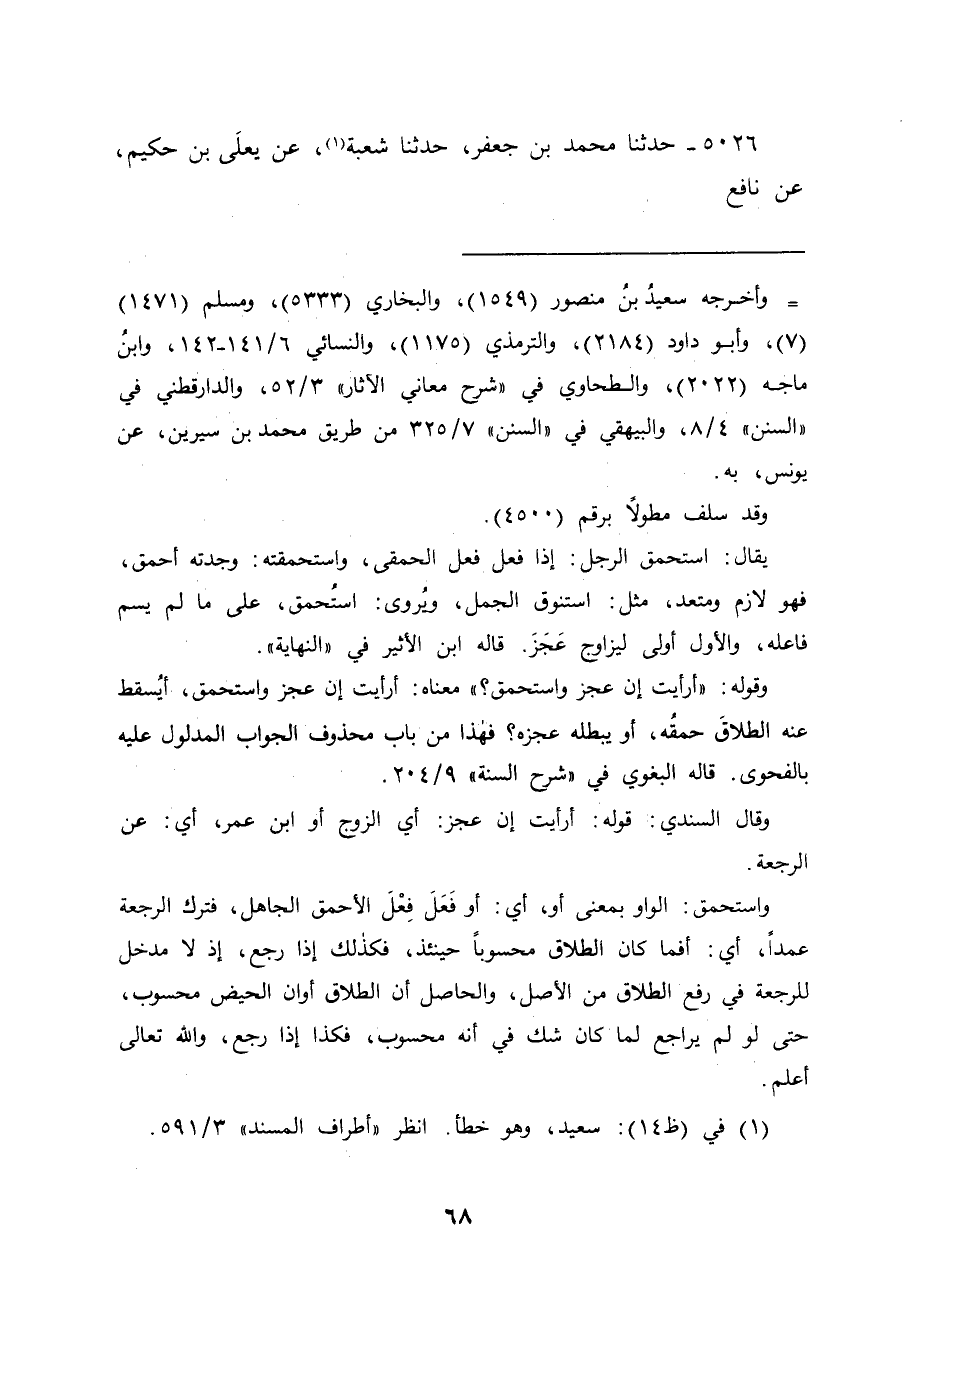 ٥٠٢٦ ـ حدثنا محمد بن جعفر، حدثنا شعبة(١)، عن يعلَى بن حكيم،
عن نافع
= وأخرجه سعيدُ بنُ منصور (١٥٤٩)، والبخاري (٥٣٣٣)، ومسلم (١٤٧١)
(٧)، وأبو داود (٢١٨٤)، والترمذي (١١٧٥)، والنسائي ١٤١/٦-١٤٢، وابنُ
ماجه (٢٠٢٢)، والطحاوي في «شرح معاني الآثار» ٥٢/٣، والدارقطني في
«السنن» ٨/٤، والبيهقي في «السنن» ٣٢٥/٧ من طريق محمد بن سيرين، عن
يونس، به.
وقد سلف مطولاً برقم (٤٥٠٠).
يقال: استحمق الرجل: إذا فعل فعل الحمقى، واستحمقته: وجدته أحمق،
فهو لازم ومتعد، مثل: استنوق الجمل، ويُروى: استُحمق، على ما لم يسم
فاعله، والأول أولى ليزاوج عَجَزَ. قاله ابن الأثير في «النهاية».
وقوله: «أرأيت إن عجز واستحمق؟» معناه: أرأيت إن عجز واستحمق، أيُسقط
عنه الطلاقَ حمقُه، أو يبطله عجزه؟ فهٰذا من باب محذوف الجواب المدلول عليه
بالفحوى. قاله البغوي في «شرح السنة» ٢٠٤/٩.
وقال السندي: قوله: أرأيت إن عجز: أي الزوج أو ابن عمر، أي: عن
الرجعة.
واستحمق: الواو بمعنى أو، أي: أو فَعَلَ فِعْلَ الأحمق الجاهل، فترك الرجعة
عمداً، أي: أفما كان الطلاق محسوباً حينئذ، فكذٰلك إذا رجع، إذ لا مدخل
للرجعة في رفع الطلاق من الأصل، والحاصل أن الطلاق أوان الحيض محسوب،
حتى لو لم يراجع لما كان شك في أنه محسوب، فكذا إذا رجع، والله تعالى
أعلم.
(١) في (ظ١٤): سعيد، وهو خطأ. انظر «أطراف المسند» ٥٩١/٣.
٦٨